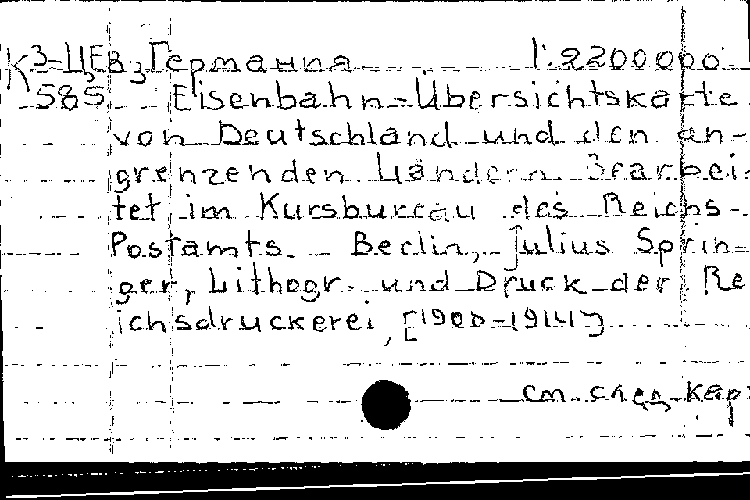 К3-ЦЕв3 Германия 1:2200000
585 Eisenbahn-Übersichtskarte
von Deutschland und den an-
grenzenden Ländern Bearbei-
tet im Kursbureau des Reichs-
Postamts. Berlin, Julius Sprin-
ger, Lithogr. und Druck der Re
ichsdruckerei, [1900-1914]
см. след. кар